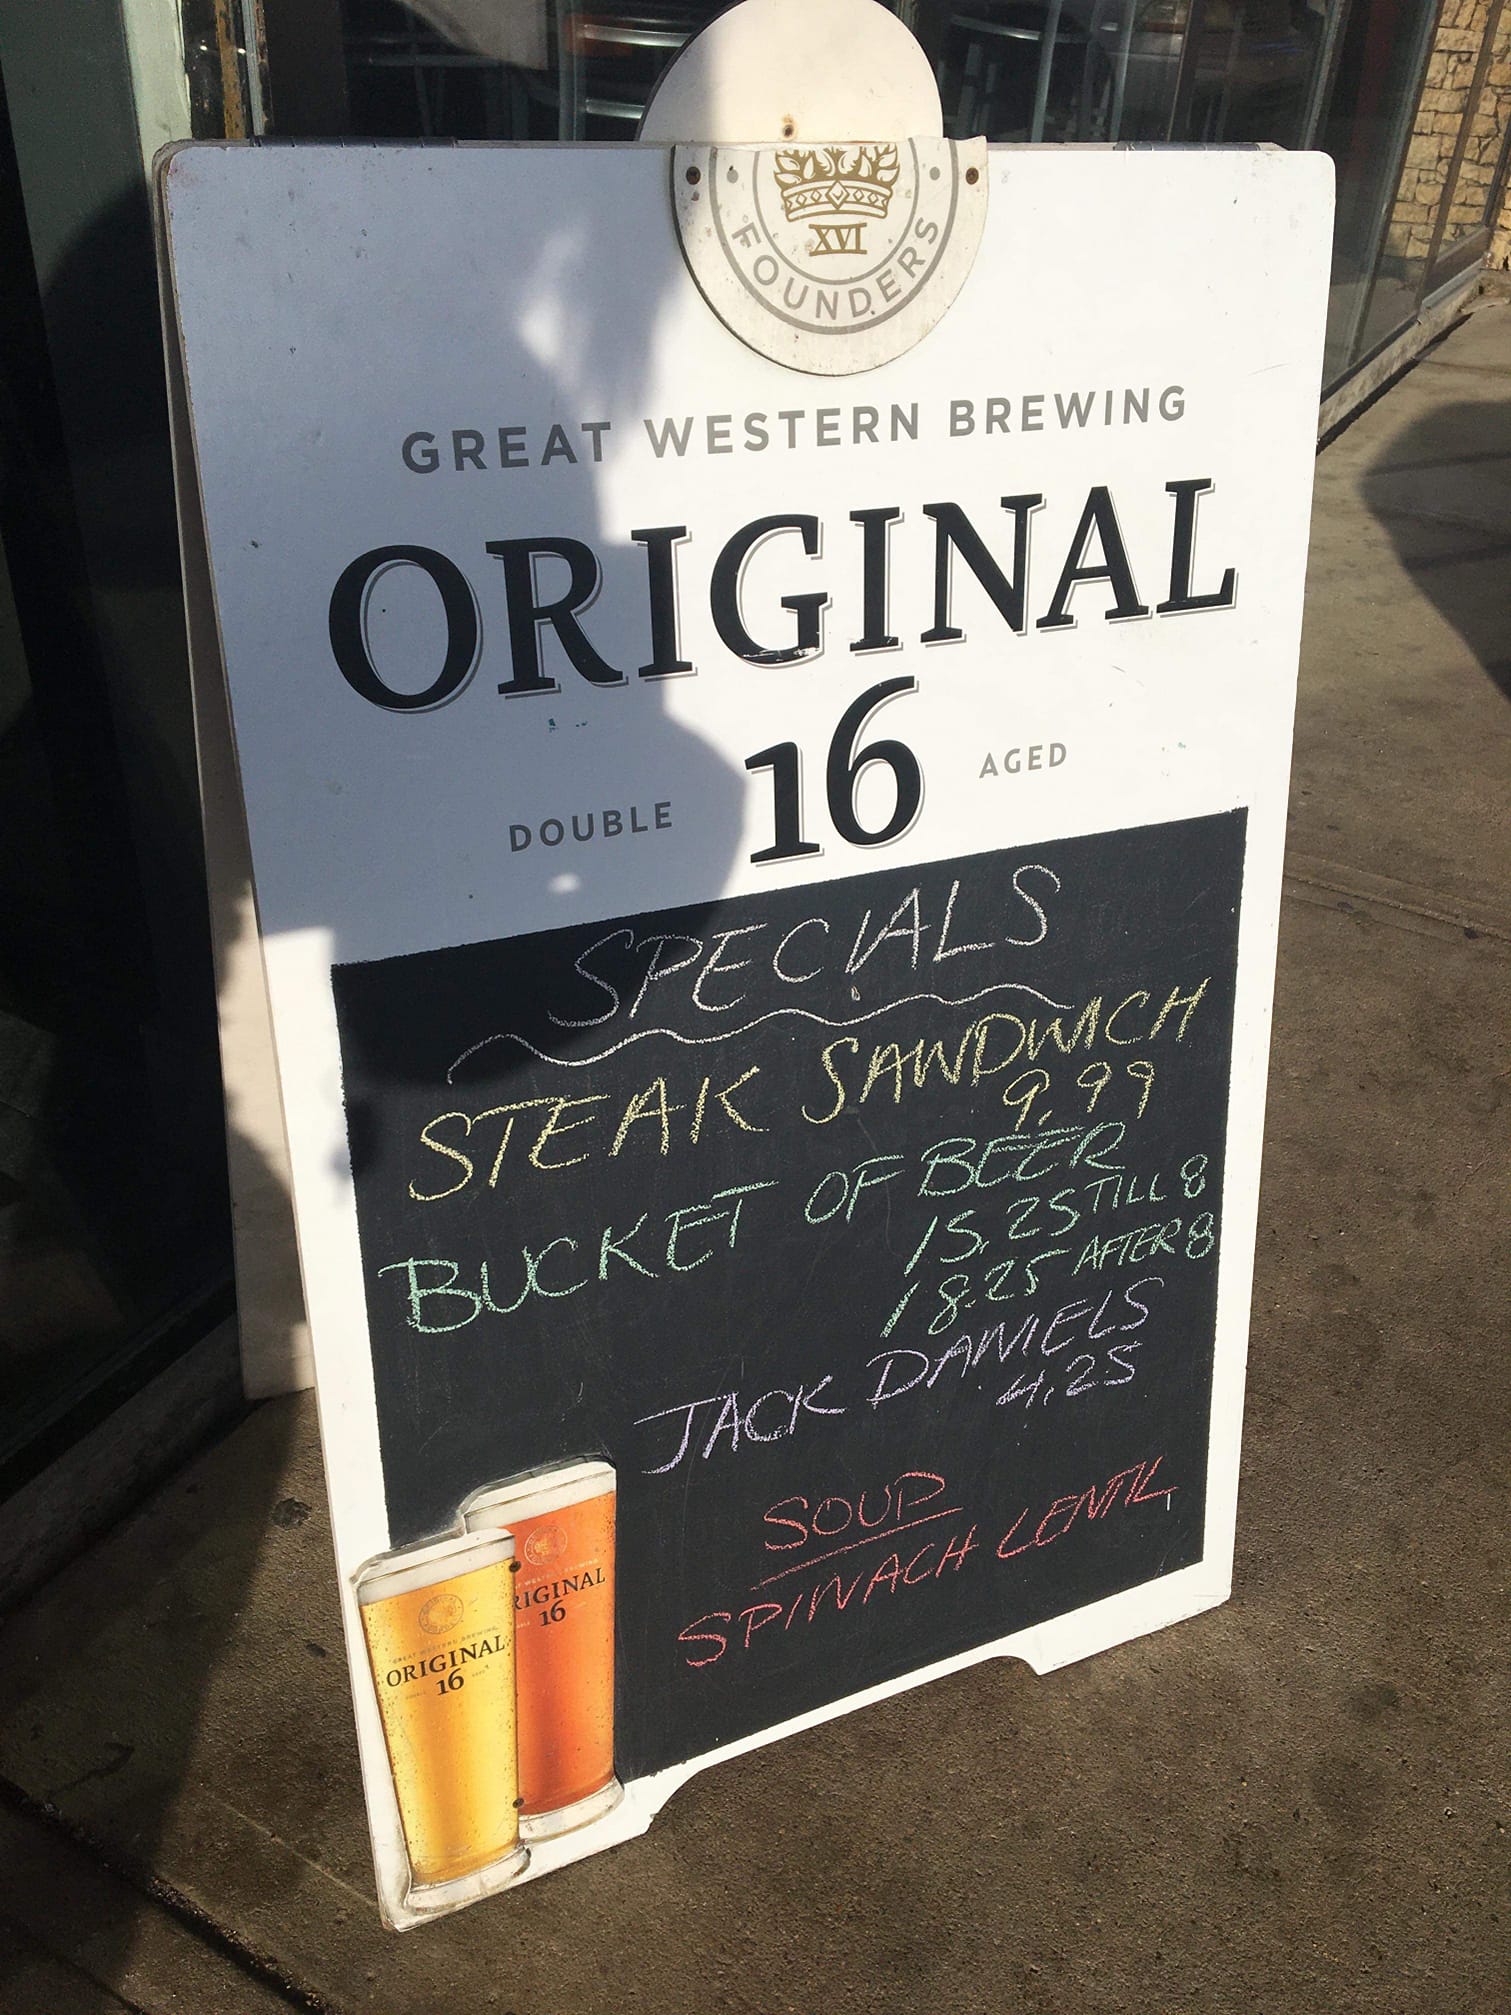 XVI
FOUNDERS
GREAT WESTERN BREWING
ORIGINAL
16
DOUBLE
AGED
SPECIALS
STEAK SANDWICH
9.99
BUCKET OF BEER
15.25 TILL 8
18.25 AFTER 8
JACK DANIELS
4.25
SOUP
SPINACH LENTIL
GREAT WESTERN BREWING
ORIGINAL
16
RIGINAL
16